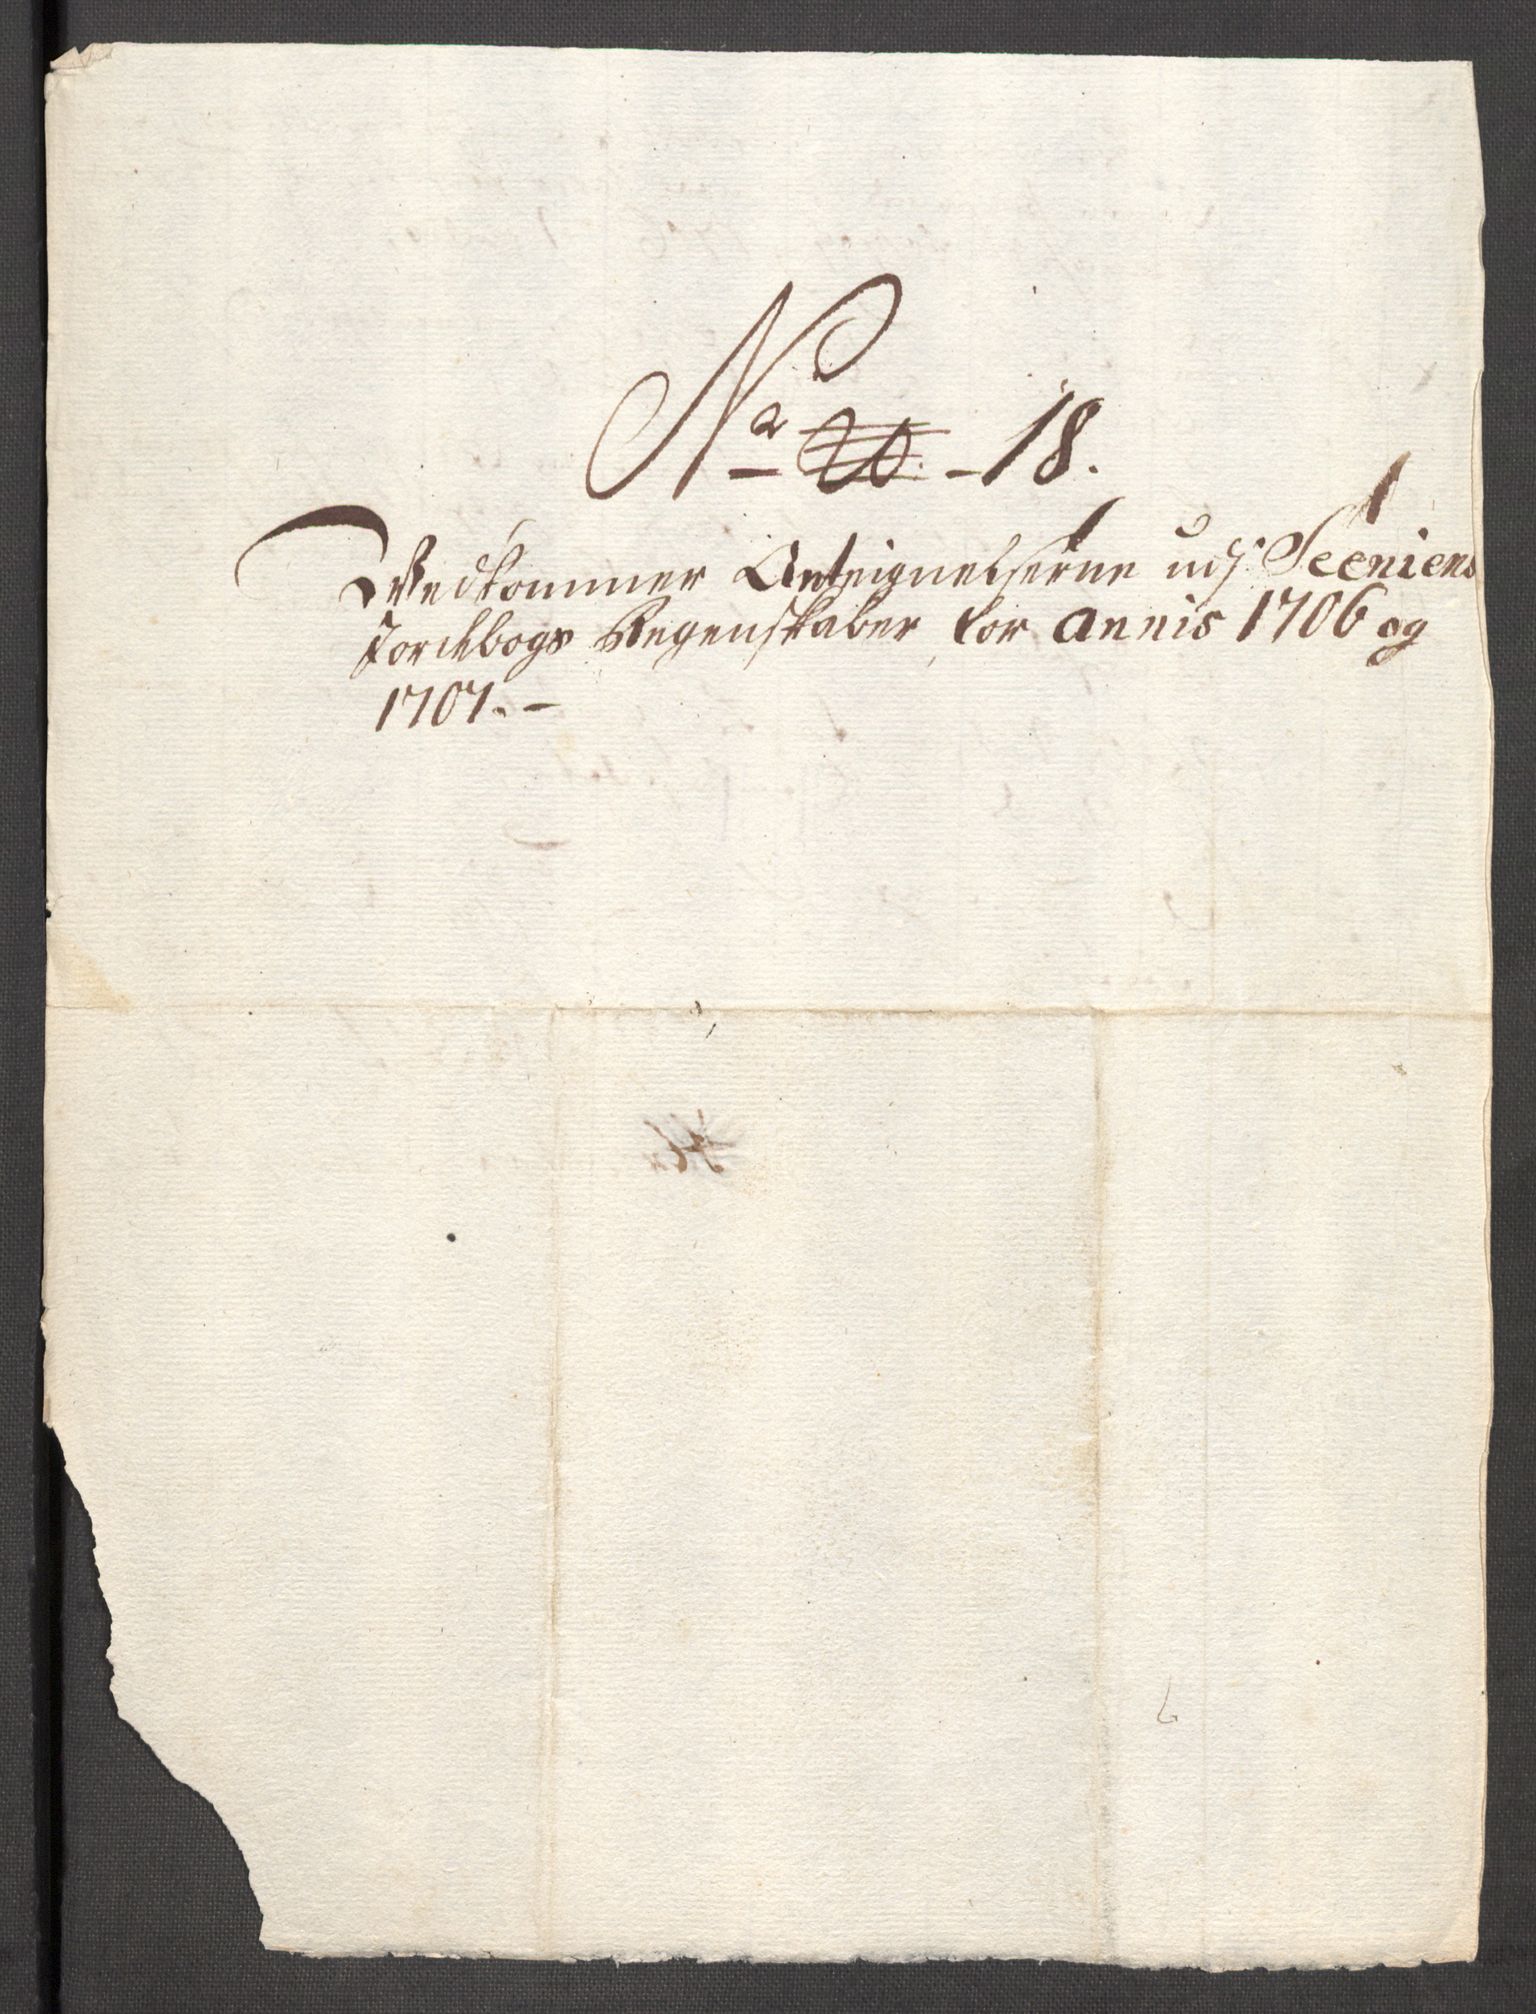 No 20. - 18.
Vedkommer Anteignelserne udj Seeniens
Jordebogs Regenskaber for Annis 1706 og
1707.-